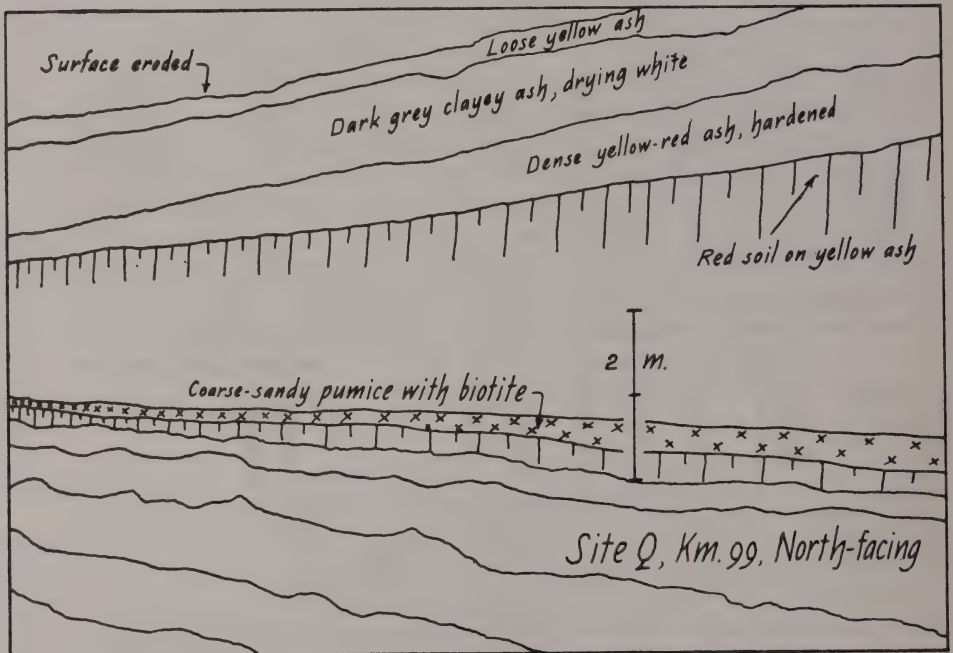 Loose yellow ash
Surface eroded
Dark grey clayey ash, drying white
Dense yellow-red ash, hardened
Red soil on yellow ash
2 m.
Coarse-sandy pumice with biotite
Site Q, Km. 99, North-facing